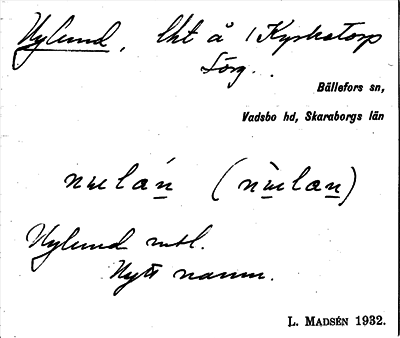 Nylund, lht å 1 Kyrketorp
Torg.
Bällefors sn,
Vadsbo hd, Skaraborgs län
Nylund mtl.
Nytt namn.
L. MADSÉN 1932.